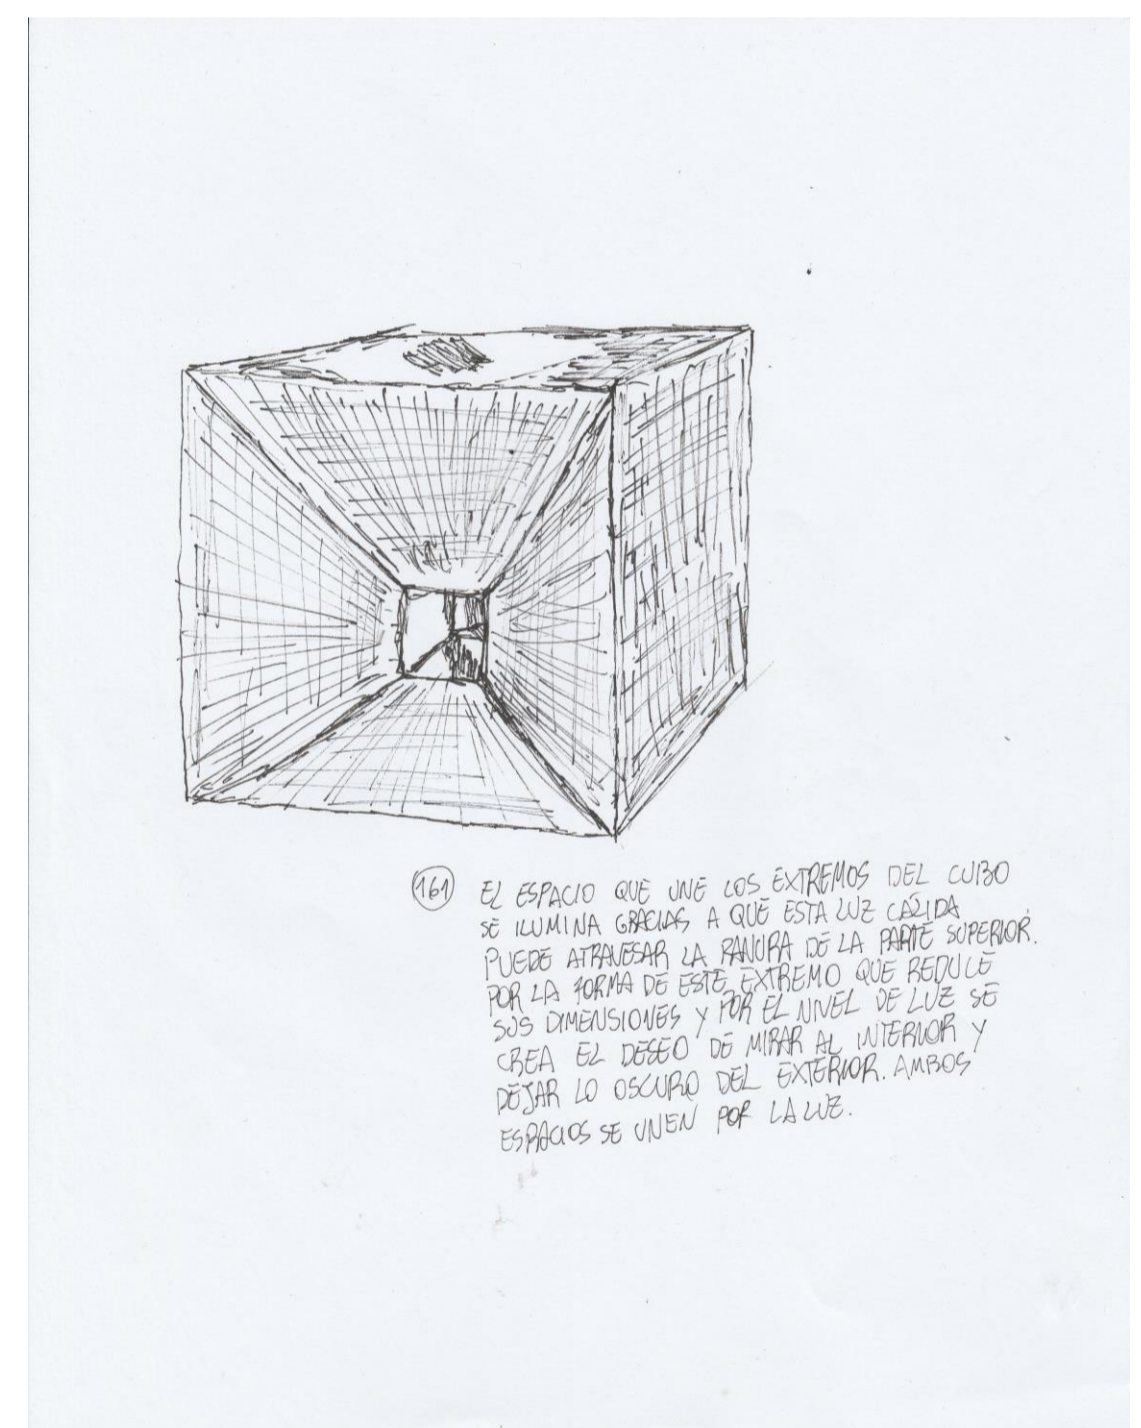 161 EL ESPACIO QUE UNE LOS EXTREMOS DEL CUBO
SE ILUMINA GRACIAS A QUE ESTA LUZ CALIDA
PUEDE ATRAVESAR LA RANURA DE LA PARTE SUPERIOR.
POR LA FORMA DE ESTE EXTREMO QUE REDUCE
SUS DIMENSIONES Y POR EL NIVEL DE LUZ SE
CREA EL DESEO DE MIRAR AL INTERIOR Y
DEJAR LO OSCURO DEL EXTERIOR. AMBOS
ESPACIOS SE UNEN POR LA LUZ.